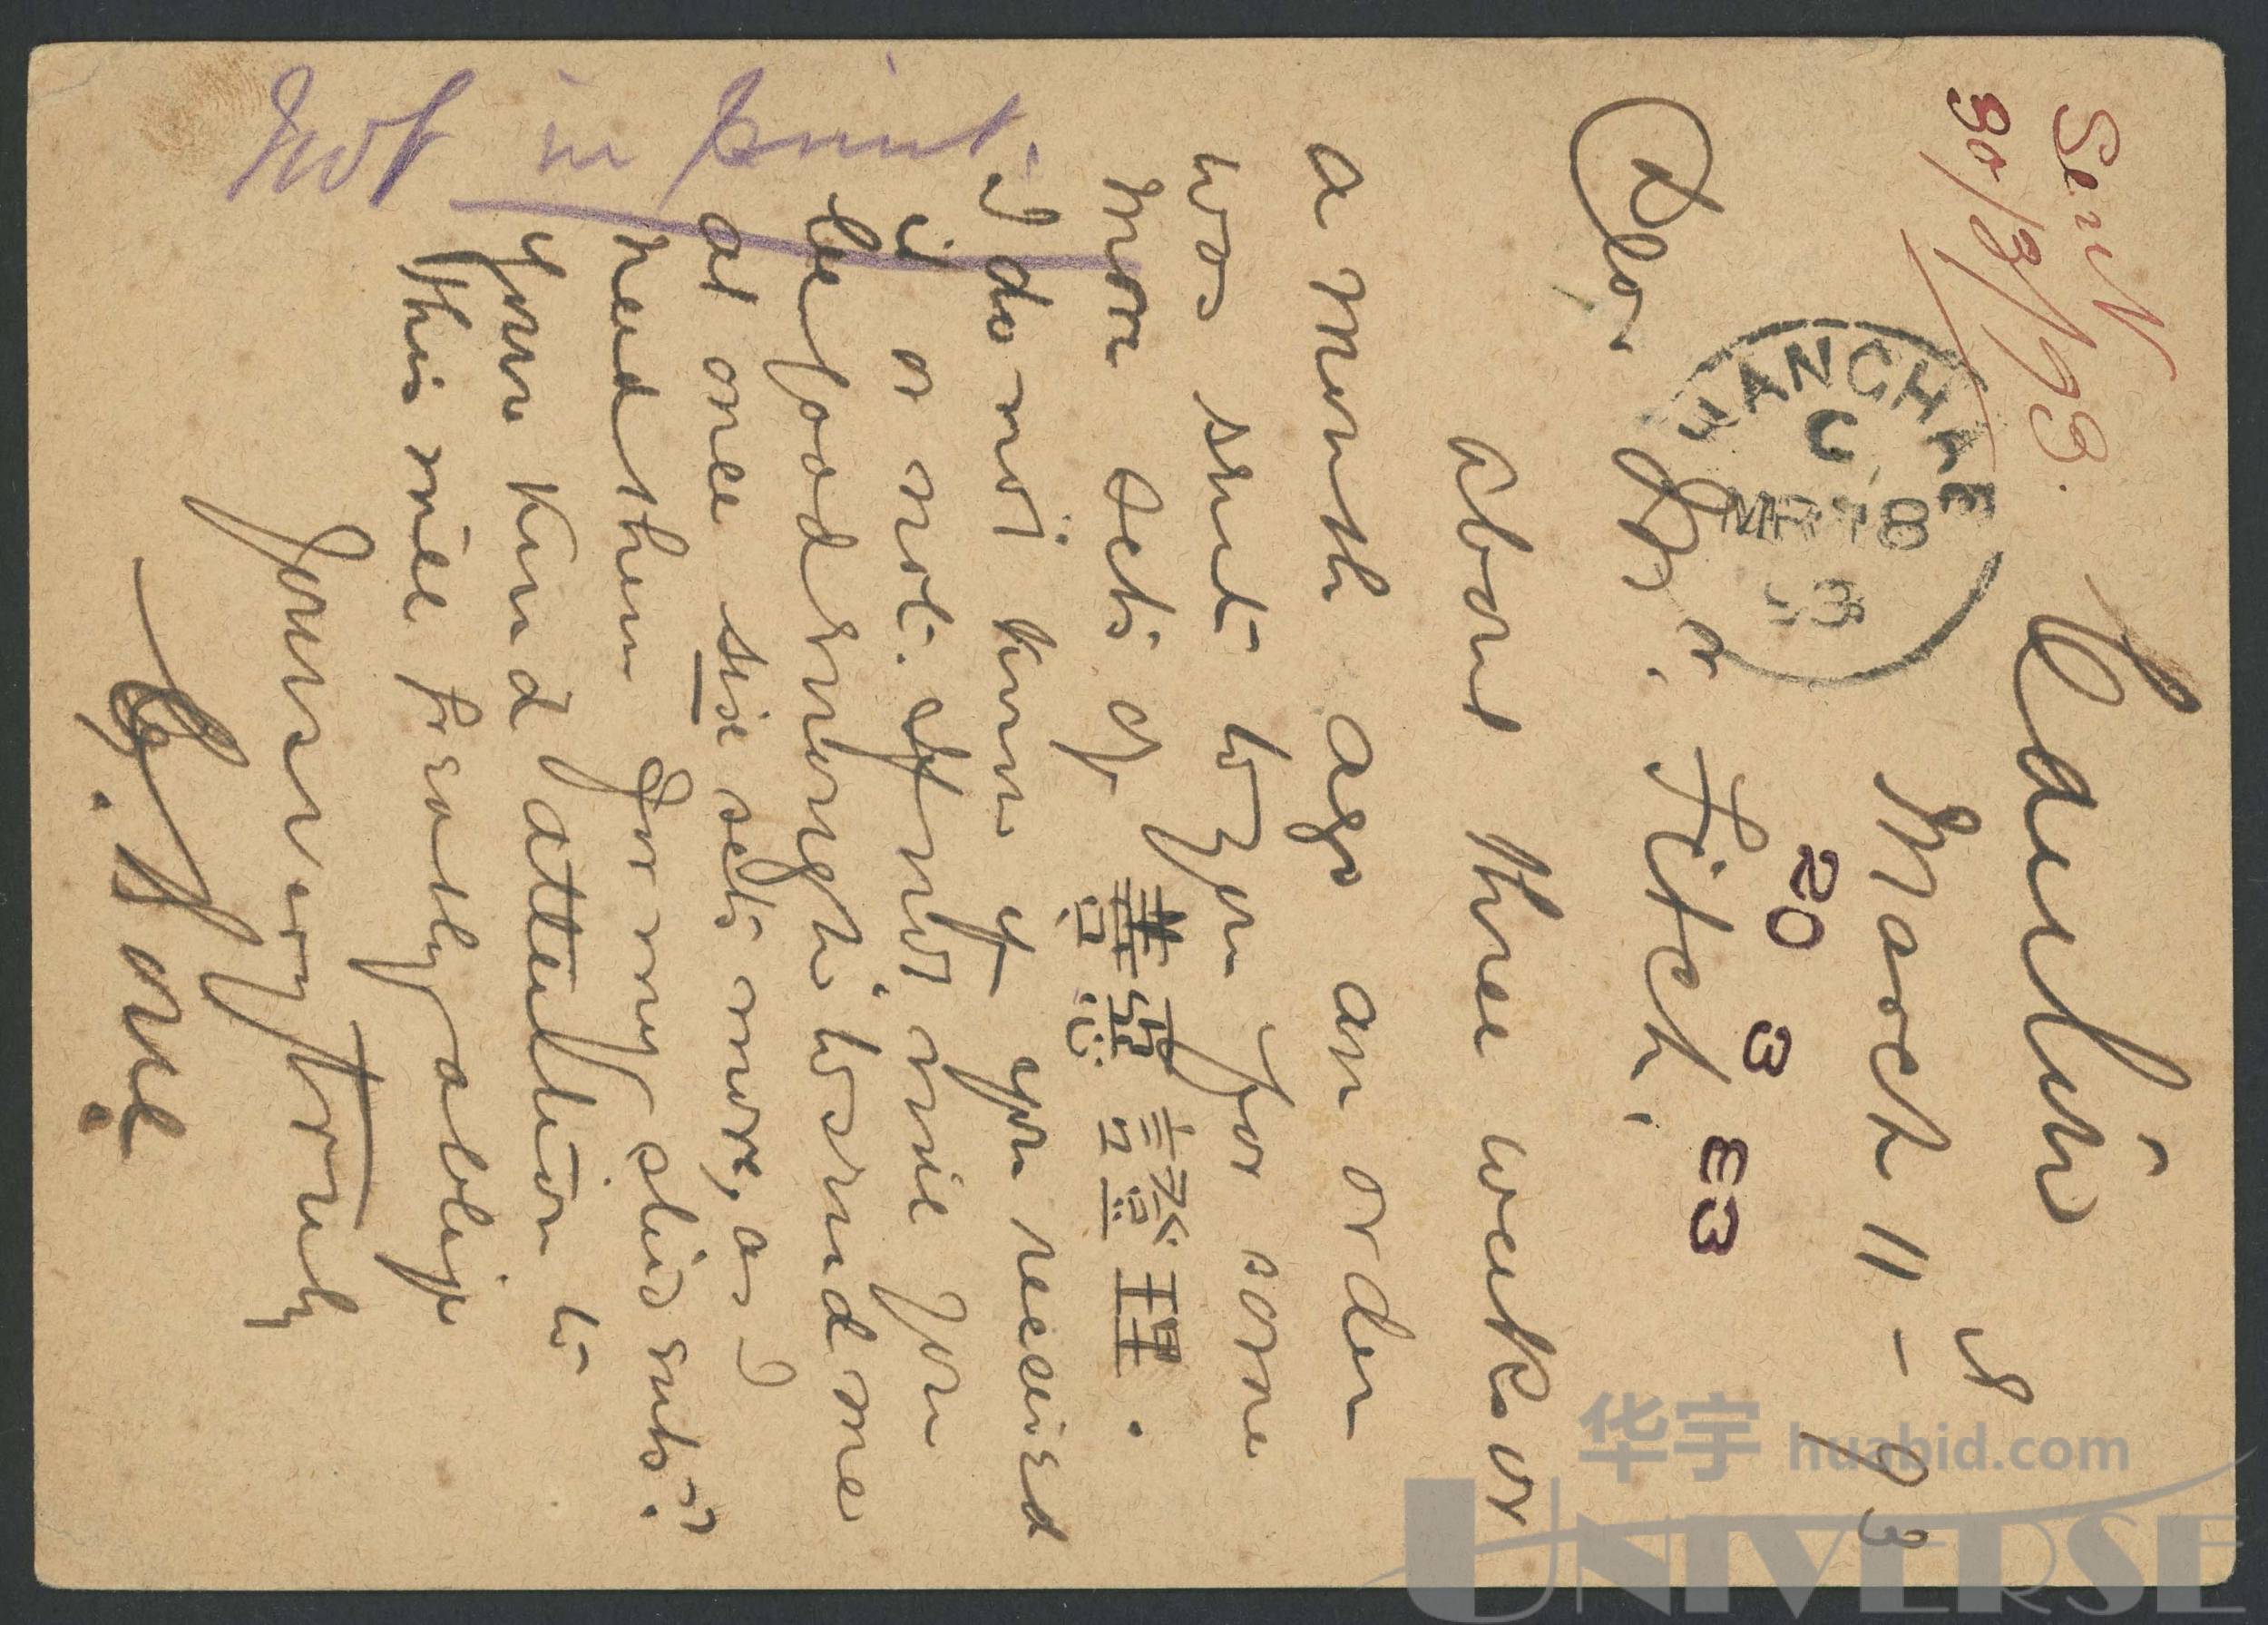 Sent
30/3/93.
Canton
March 11 - 93
SHANGHAI
C
MR 18
93
20 3 E3
Dear Dr. Fitch.
about three weeks or
a month ago an order
was sent to you for some
more sets of 善惡證理.
I do not know if you received
it or not. If not, will you
be good enough to send me
at once six sets more, as I
need them for my students.
Your kind attention to
this will greatly oblige
Yours very truly
Not in print.
华宇 huabid.com
UNIVERSE